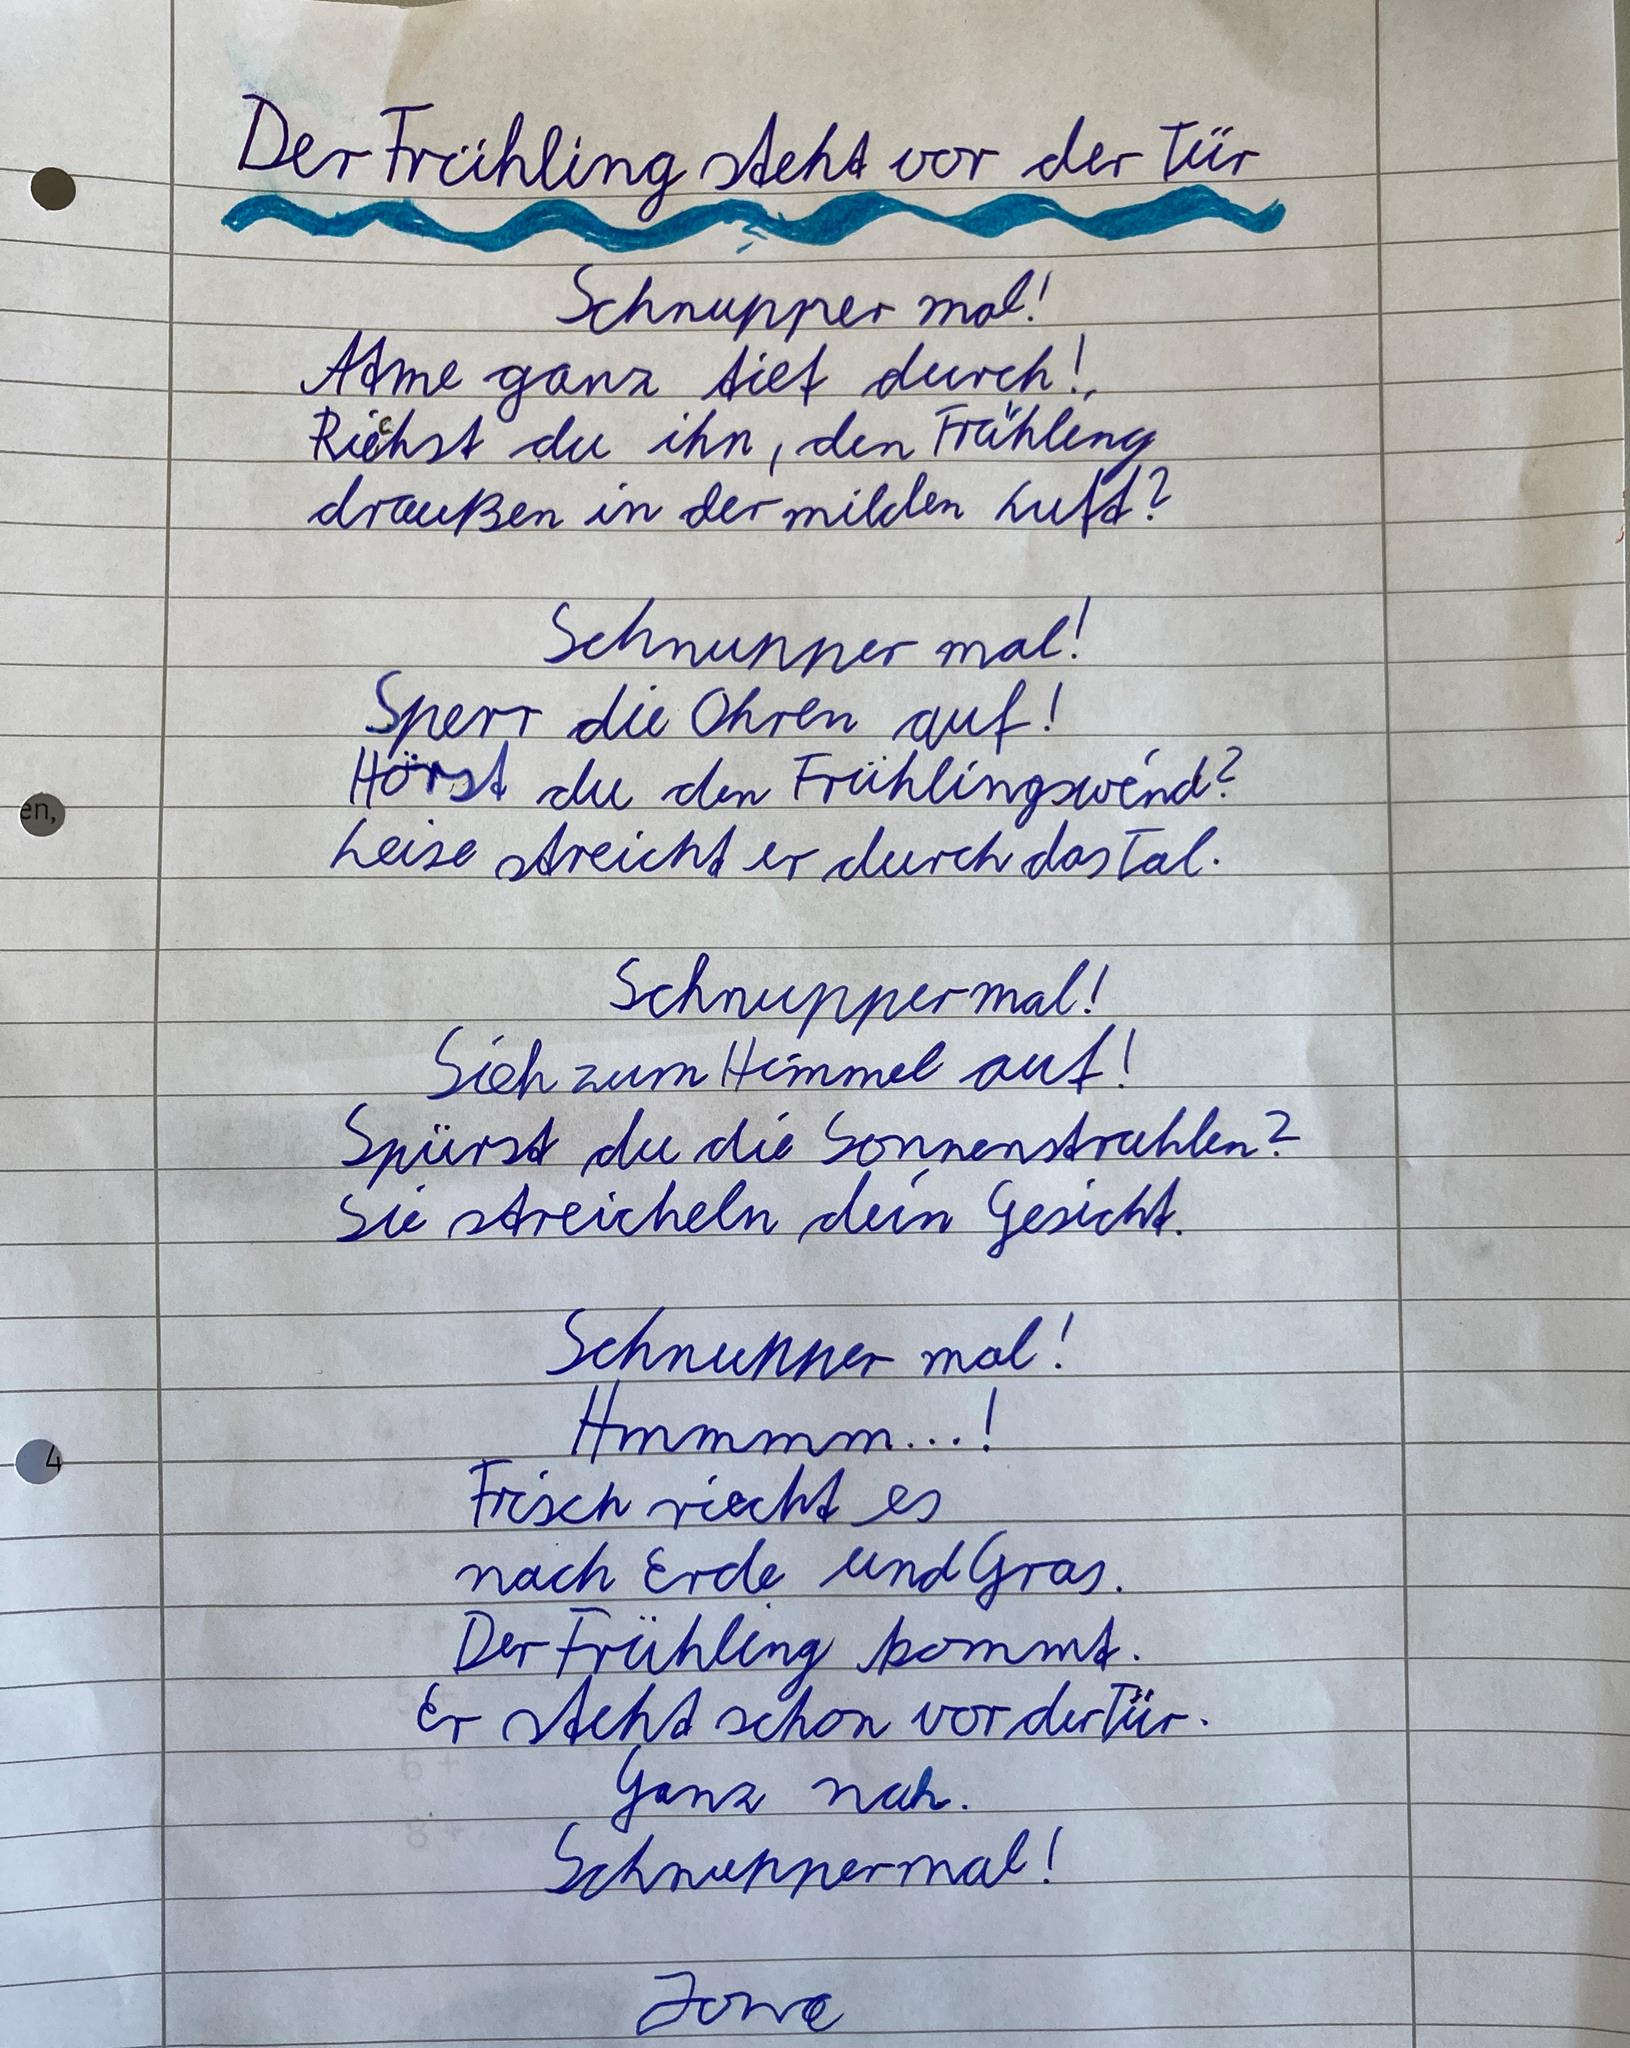 Der Frühling steht vor der Tür
Schnupper mal!
Atme ganz tief durch!
Riechst du ihn, den Frühling
draußen in der milden Luft?
Schnupper mal!
Sperr die Ohren auf!
Hörst du den Frühlingswind?
Leise streicht er durch das Tal.
en,
Schnupper mal!
Sieh zum Himmel auf!
Spürst du die Sonnenstrahlen?
Sie streicheln dein Gesicht.
Schnupper mal!
Hmmmmm...!
4
Frisch riecht es
nach Erde und Gras.
Der Frühling kommt.
Er steht schon vor der Tür.
Ganz nah.
Schnupper mal!